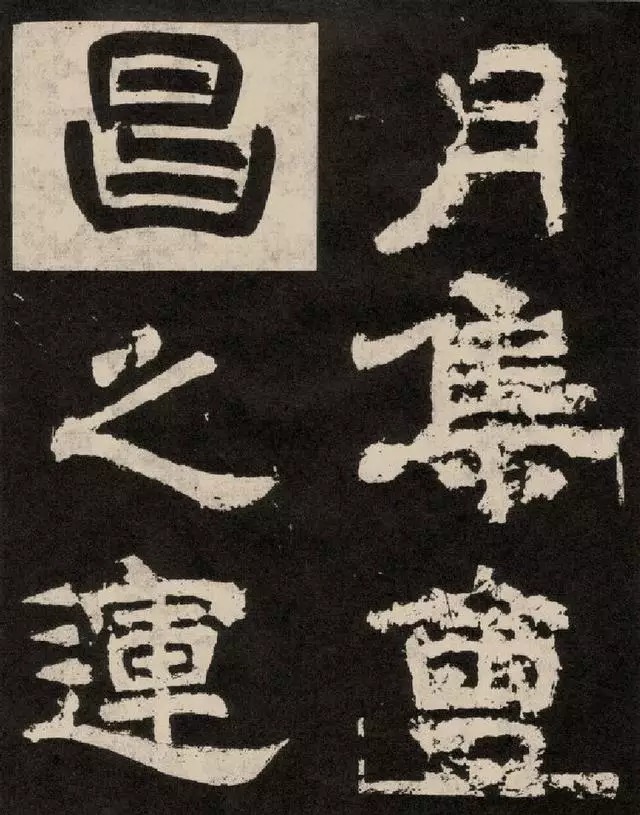 月集會
昌之運